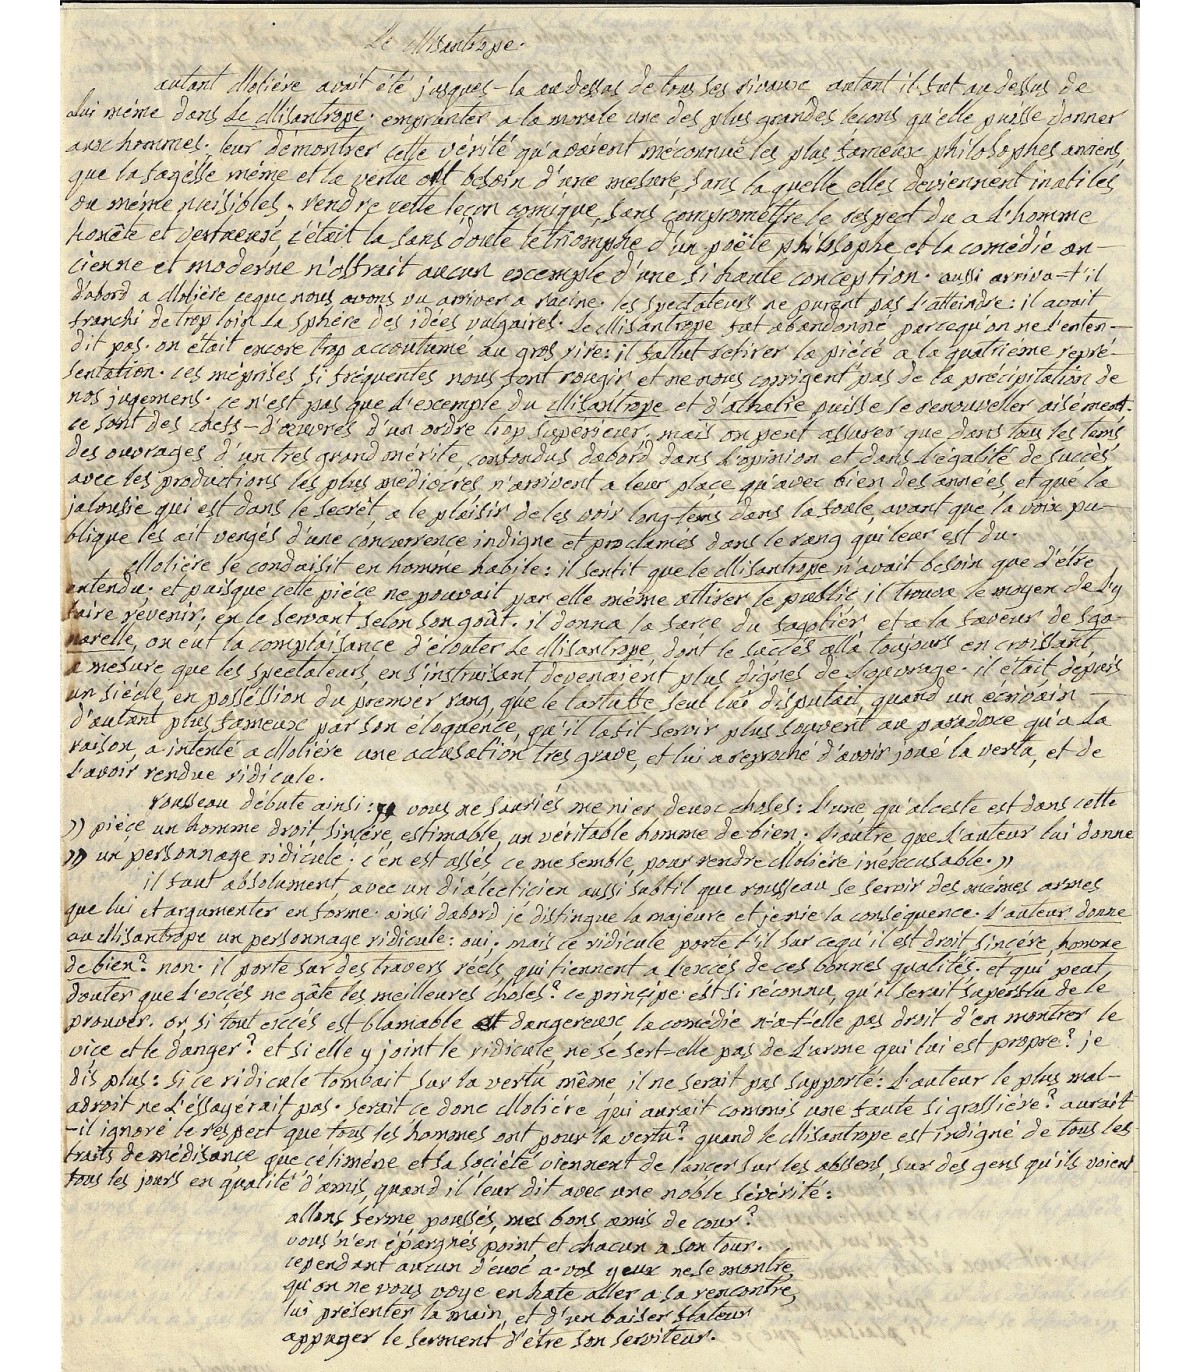 Le Misantrope.
autant Moliére avait été jusques-la audessus de tous ses rivaux autant il fut au dessus de
lui méme dans Le Misantrope. emprunter a la morale une des plus grandes leçons qu'elle puisse donner
aux hommes. leur démontrer cette vérité qu'avaient méconnuë les plus fameux philosophes anciens,
que la sagésse méme et la vertu ont besoin d'une mesure, sans laquelle elles deviennent inutiles
ou méme nuisibles. rendre cette leçon comique, sans compromettre le respect du a l'homme
honête et vertueux, c'était la sans doute le triomphe d'un poëte philosophe et la comédie an-
cienne et moderne n'offrait aucun excemple d'une si haute conception. aussi arriva-t'il
d'abord a Moliére ceque nous avons vu arriver a racine. les spectateurs ne purent pas l'atteindre: il avait
franchi de trop loin la sphére des idées vulgaires. Le Misantrope fut abandonné, parcequ'on ne l'enten-
dit pas. on était encore trop accoutumé au gros rire: il fallut retirer la piécé a la quatriéme repré-
sentation. ces méprises si fréquentes nous font rougir et ne nous corrigent pas de la précipitation de
nos jugemens. ce n'est pas que l'exemple du Misantrope et d'athalie puisse se renouveller aisément.
ce sont des chefs-d'œuvres d'un ordre trop supérieur; mais on peut assurer que dans tous les tems
des ouvrages d'un trés grand mérite, confondus dabord dans l'opinion et dans l'égalité de succés
avec les productions les plus médiocres n'arrivent a leur place qu'avec bien des années, et que la
jalousie qui est dans le secrét, a le plaisir de les voir long-tems dans la foule, avant que la voix pu-
blique les ait vengés d'une concurrence indigne et proclamés dans le rang qui leur est du.
Moliére se conduisit en homme habile: il sentit que le Misantrope n'avait besoin que d'étre
entendu. et puisque cette piéce ne pouvait par elle méme attirer le public il trouva le moyen de l'y
faire révenir, en le servant selon son goût. il donna la farce du fagotier et a la faveur de sga-
narelle, on eut la complaisance d'écouter Le Misantrope, dont le succés alla toujours en croissant,
a mesure que les spectateurs, en s'instruisant devenaient plus dignes de l'ouvrage. il était dépuis
un siécle, en possession du premier rang, que le tartuffe seul lui disputait, quand un ecrivain —
d'autant plus fameux par son éloquence, qu'il la fit servir plus souvent au paradoxe qu'a la
raison, a intenté a Moliére une accusation trés grave, et lui a reproché d'avoir joué la vertu, et de
l'avoir rendue ridicule.
rousseau débute ainsi: ,, vous ne sauriés me nier deux choses: l'une qu'alceste est dans cette
,, piéçe un homme droit sinçére, estimable, un véritable homme de bien. l'autre que l'auteur lui donne
,, un personnage ridicule. c'en est assés, ce me semble, pour rendre Moliére inéxcusable. ,,
il faut absolument, avec un dialécticien aussi subtil que rousseau se servir des mémes armes
que lui et argumenter en forme. ainsi dabord je distingue la majeure et je nie la conséquence. l'auteur donne
au Misantrope un personnage ridicule: oui. mais ce ridicule porte t'il sur cequ'il est droit, sincére, homme
de bien? non. il porte sur des travers réels, qui tiennent a l'excés de ces bonnes qualités. et qui peut,
douter que l'excés ne gâte les meilleures choses? ce principe est si réconnu, qu'il serait superflu de le
prouver. or, si tout excés est blamable et dangereux, la comédie n'a-t'elle pas droit d'en montrer le
vice et le danger? et si elle y joint le ridicule, ne se sert-elle pas de l'arme qui lui est propre? je
dis plus: si ce ridicule tombait sur la vertu même il ne serait pas supporté: l'auteur le plus mal-
adroit ne l'éssayérait pas. serait ce donc Moliére qui aurait commis une faute si grossiére? aurait
-il ignoré le réspect que tous les hommes ont pour la vertu? quand le Misantrope est indigné de tous les
traits de médisance que céliméne et sa société viennent de lancer sur les absens, sur des gens qu'ils voient
tous les jours en qualité d'amis, quand il leur dit avec une noble sévérité:
allons ferme poussés, mes bons amis de cour?
vous n'en épargnés point, et chacun a son tour.
cependant aucun d'eux a vos yeux ne se montre,
qu'on ne vous voye en hate aller a sa rencontre,
lui présenter la main, et d'un baiser flateur
appuyer le serment d'étre son serviteur.